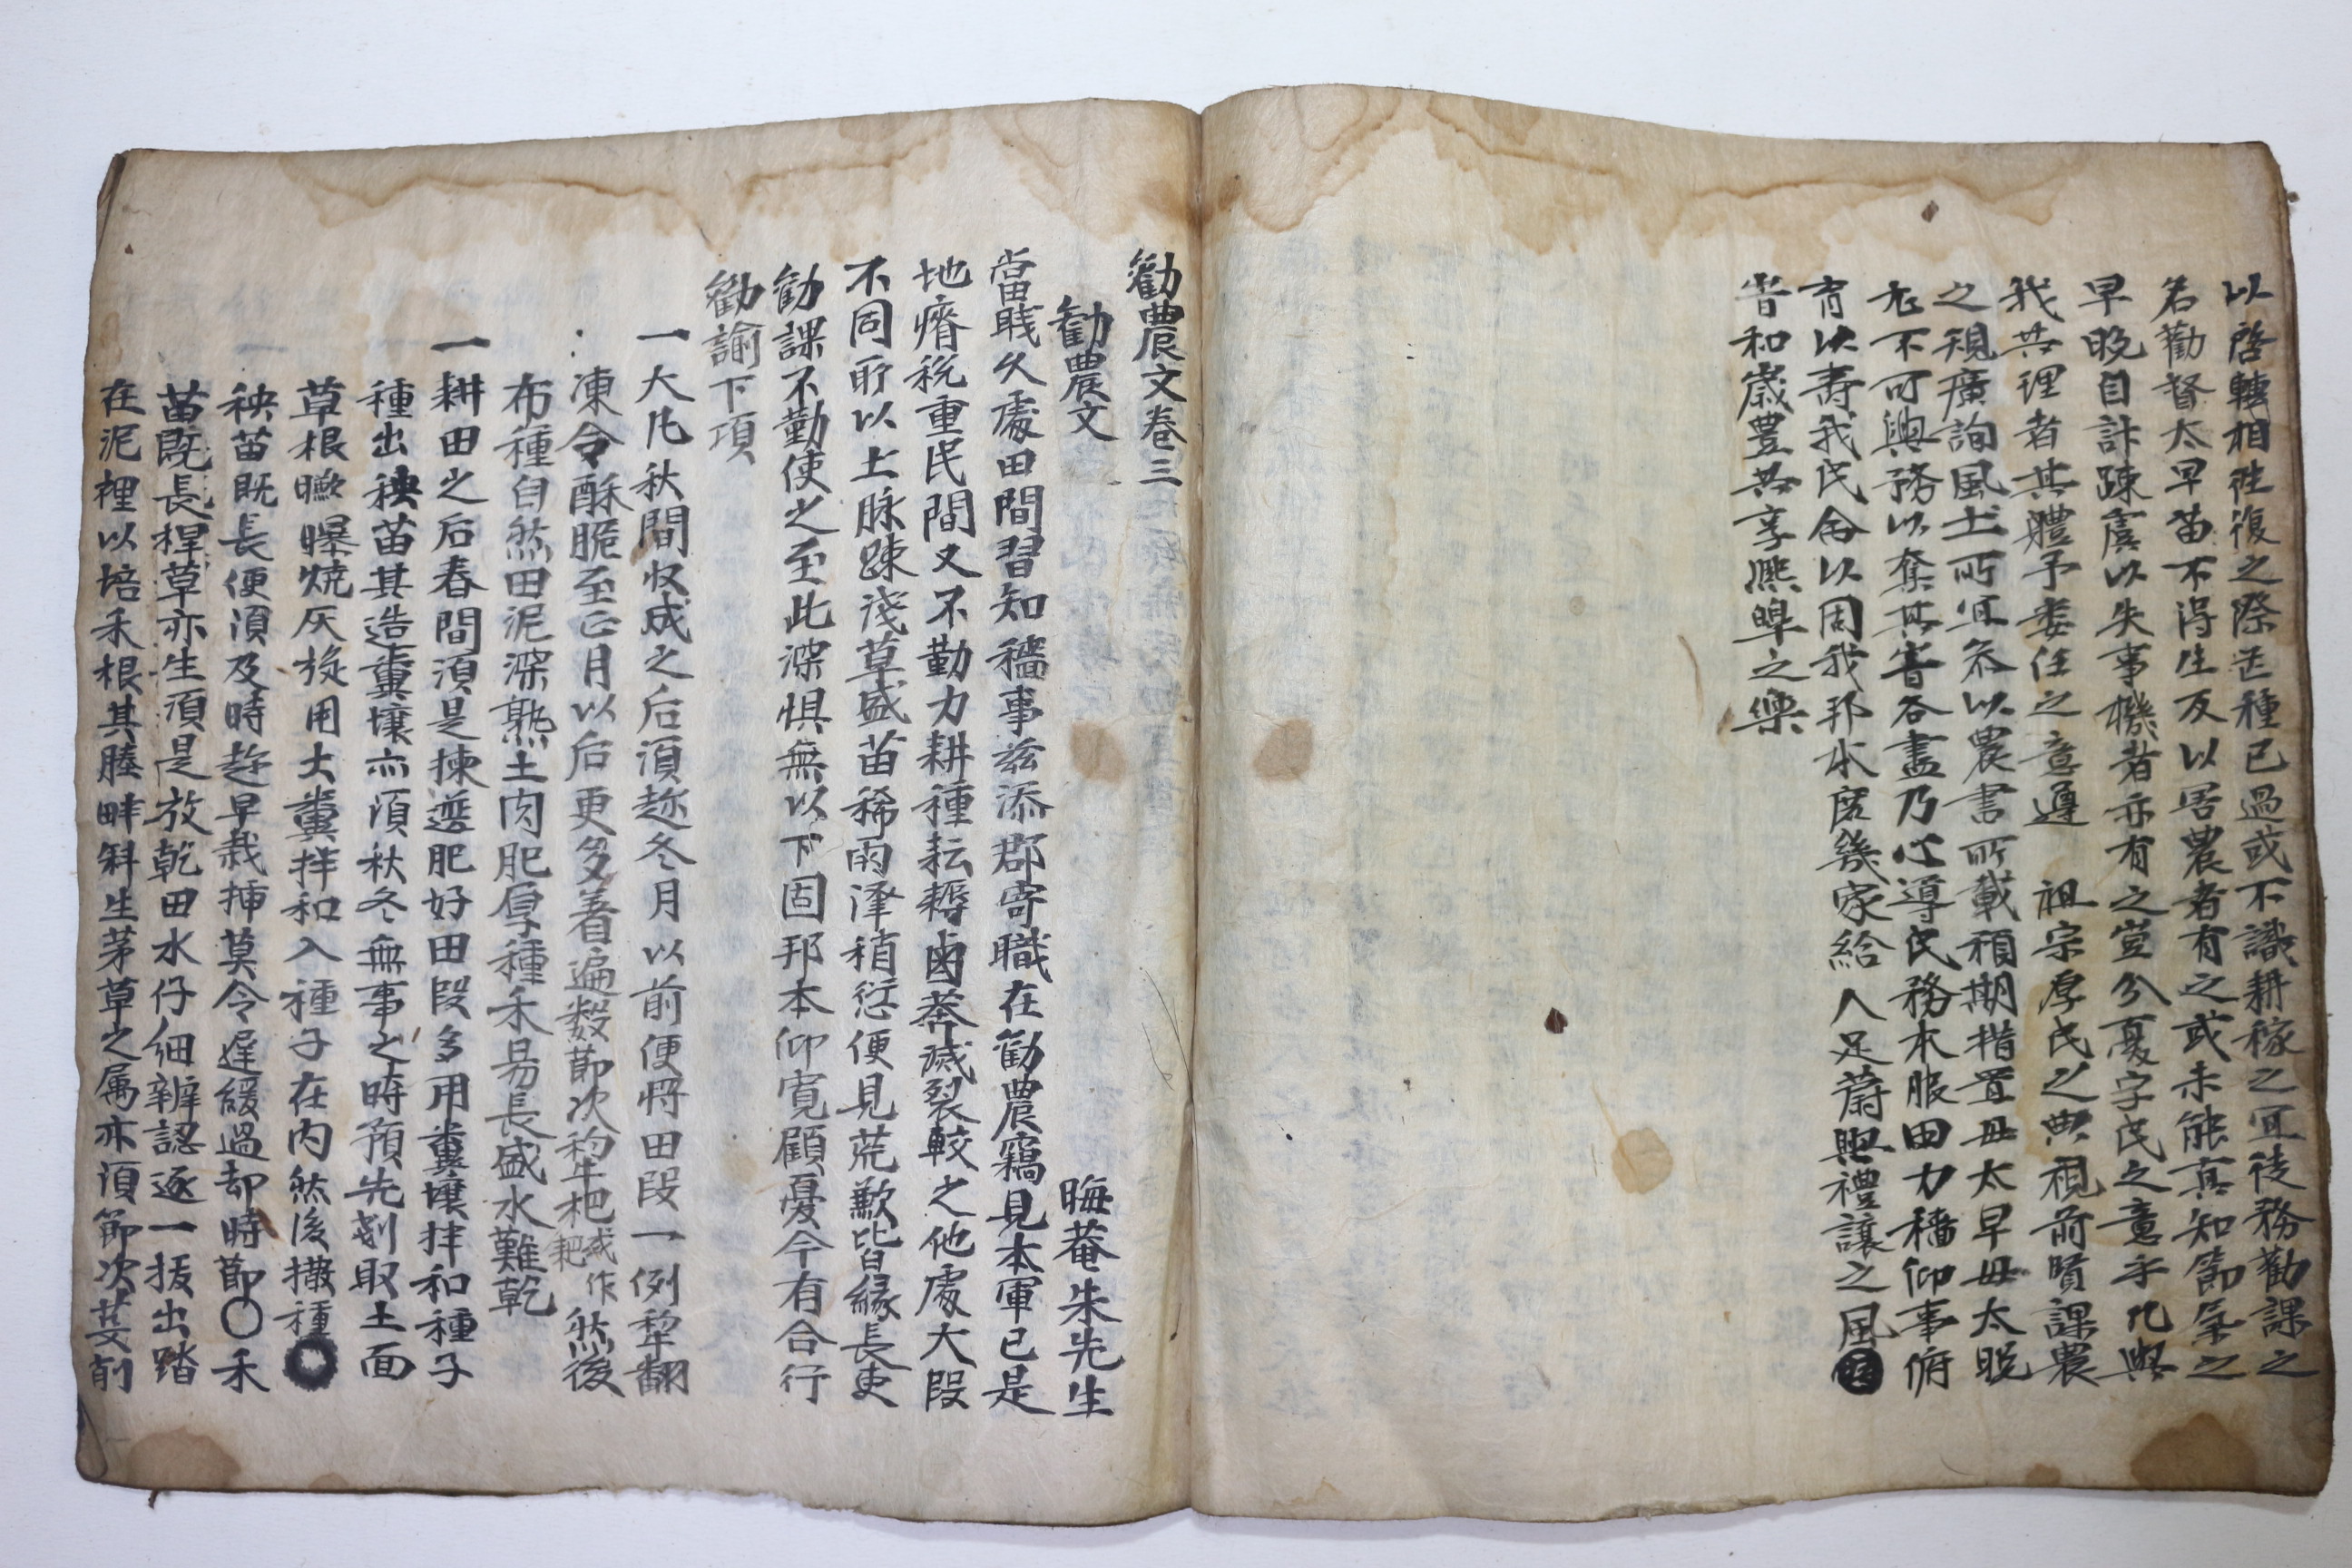 以啓轉相徃復之際芒種已過或不識耕稼之冝徒務勸課之
名勸督太早苗不得生反以害農者有之或未能真知節氣之
早晚自計踈虞以失事機者亦有之豈分憂字民之意乎凡與
我共理者其軆予委任之意遵 祖宗厚民之典視前賢課農
之規廣詢風土所冝叅以農書所載預期措置毋太早毋太晚
尤不可興務以奪其害各盡乃心導民務本服田力穡仰事俯
育以壽我民命以固我邦本庶幾家給人足蔚興禮讓之風
普和歲豊共享熙皥之樂
勸農文卷三
勸農文 晦菴朱先生
當職久處田間習知穡事玆忝郡寄職在勸農竊見本軍已是
地瘠稅重民間又不勤力耕種耘耨鹵莾滅裂較之他處大段
不同所以土脉踈淺草盛苗稀雨澤稍愆便見荒歉皆緣長吏
勸課不勤使之至此深懼無以下固邦本仰寬顧憂今有合行
勸諭下項
一大凡秋間收成之后湏趂冬月以前便將田段一例犂翻
凍令酥脆至正月以后更多著遍數節次犂杷或作耙然後
布種自然田泥深熟土肉肥厚種禾易長盛水難乾
一耕田之后春間湏是揀選肥好田段多用糞壤拌和種子
種出秧苗其造糞壤亦湏秋冬無事之時預先剗取土面
草根曬曝燒灰旋用大糞拌和入種子在內然後撒種
秧苗旣長便湏及時趂早栽揷莫令遲緩過却時節○禾
苗旣長稈草亦生湏是放乾田水仔細辨認逐一拔出踏
在泥裡以培禾根其塍畔斜生茅草之属亦湏節次芟削